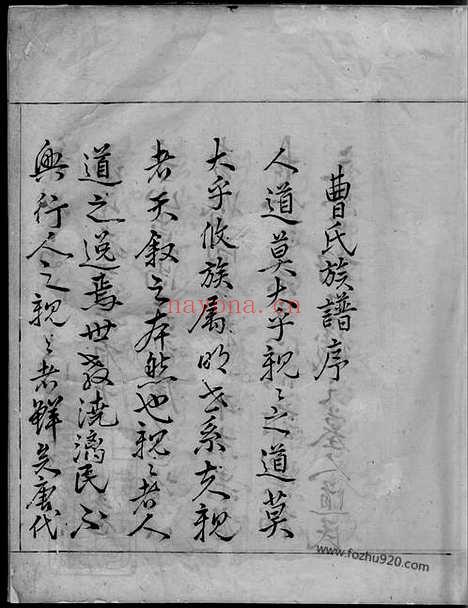 曹氏族譜序
人道莫大乎親〻之道莫
大乎攸族屬明世系夫親
者天叙之本然也親〻者人
道之迯焉世教澆漓民不
興行人之親〻者鮮矣唐代
nayona.cn
www.fozhu920.com